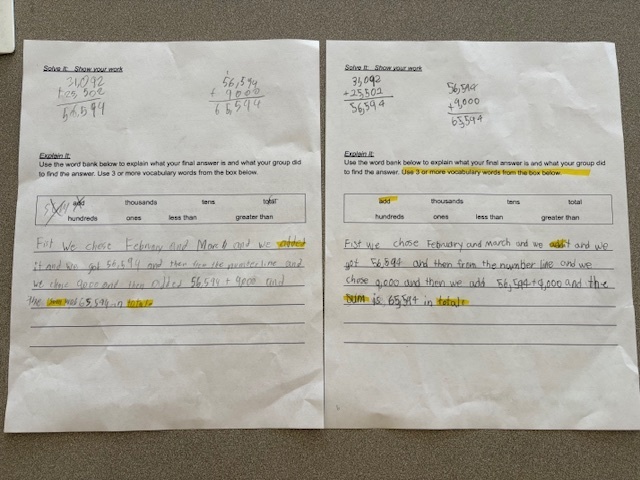 Solve It: Show your work
31,092
+25,502
56,594
56,594
+ 9,000
65,594
Explain It:
Use the word bank below to explain what your final answer is and what your group did
to find the answer. Use 3 or more vocabulary words from the box below.
add thousands tens total
hundreds ones less than greater than
We chose February and March and we added
it and we got 56,594 and then for the number line and
we chose 9000 and then added 56,594 + 9,000 and
the 65,594 in total
Solve It: Show your work
+25,502
56,594
56,594
+9,000
65,594
Explain It:
Use the word bank below to explain what your final answer is and what your group did
to find the answer. Use 3 or more vocabulary words from the box below.
add thousands tens total
hundreds ones less than greater than
Fist we chose February and march and we add it and we
got 56,594 and then from the number line and we
chose 9,000 and then we add 56,594+9,000 and the
sum is 65,594 in total